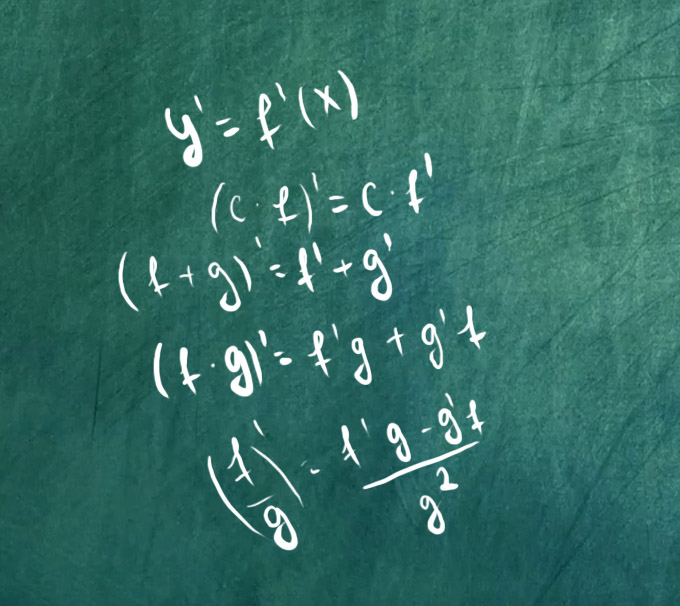 y' = f'(x)
(c · f)' = c · f'
(f + g)' = f' + g'
(f · g)' = f'g + g'f
(f/g)' = (f'g - g'f)/g²